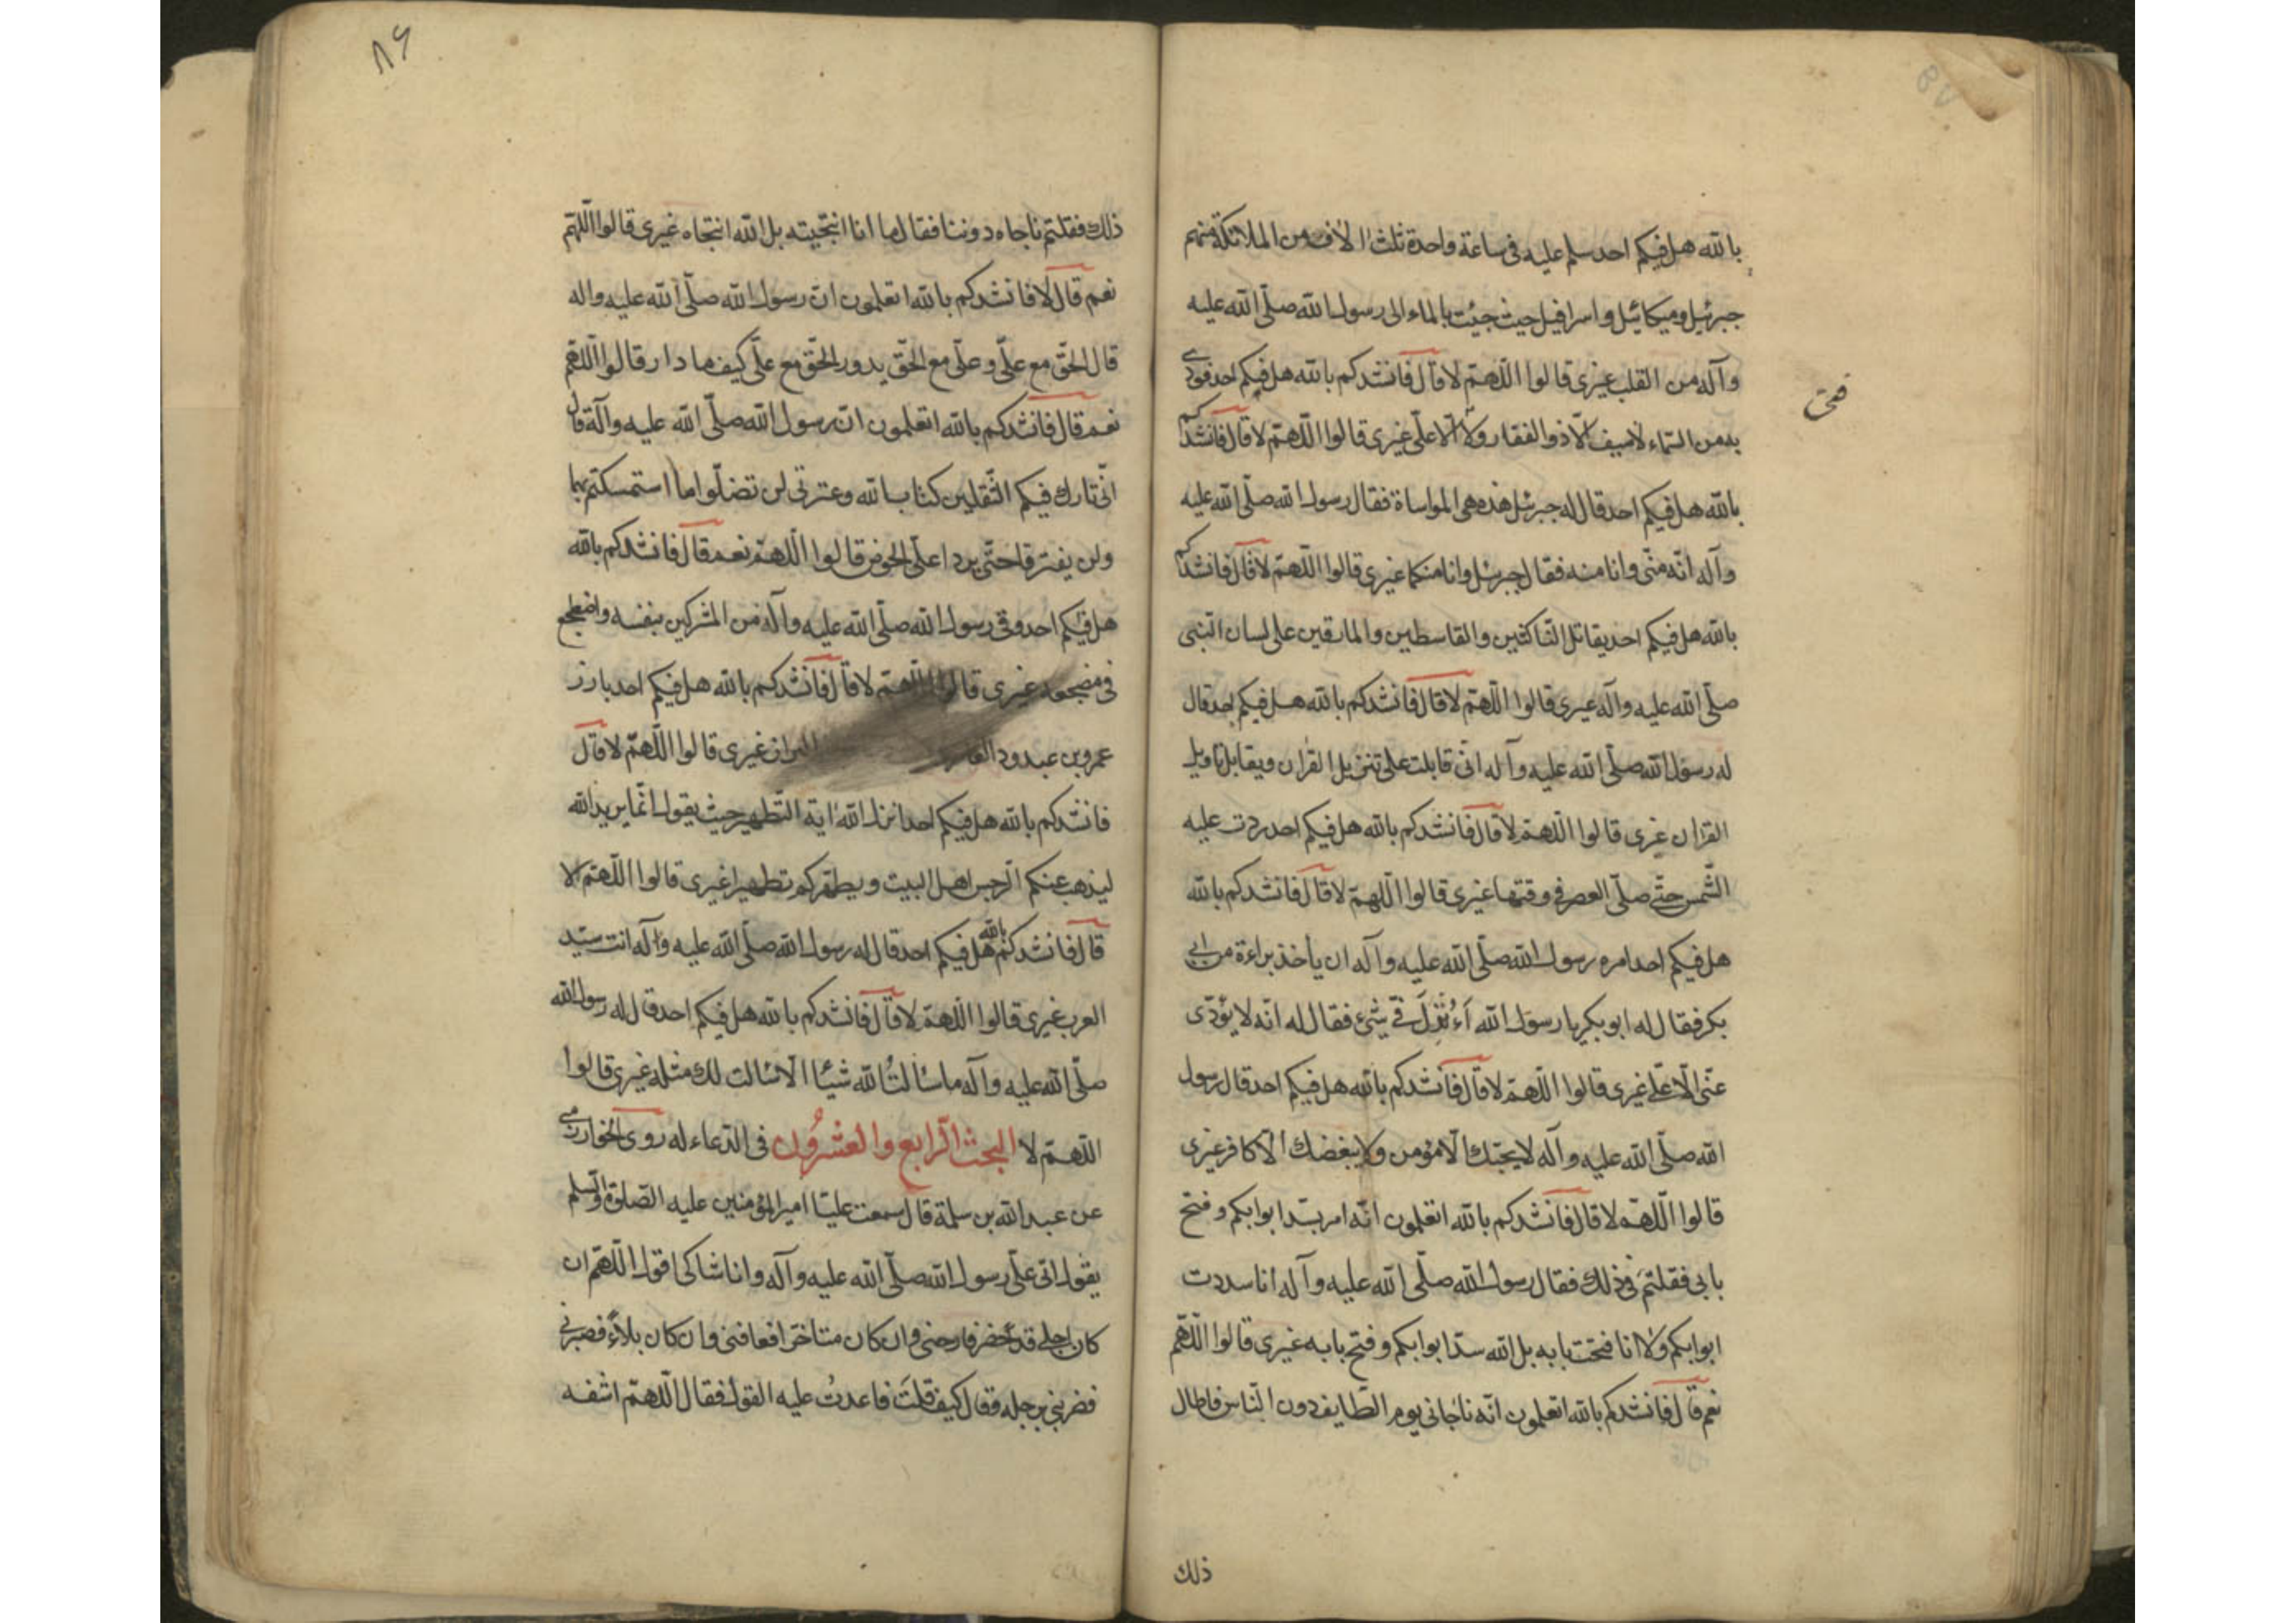 بالله هل فيكم احد سلم عليه فى ساعة واحدة ثلثة الاف من الملائكة منهم
جبرئيل وميكائيل واسرافيل حيث جئت بالماء الى رسول الله صلّى الله عليه
وآله من القلب غيرى قالوا اللّهمّ لا قال فانشدكم بالله هل فيكم احد نودى
به من السّماء لا سيف الّا ذو الفقار ولا الّا علّى غيرى قالوا اللّهمّ لا قال فانشدكم
بالله هل فيكم احد قال له جبرئيل هذه هى المواساة فقال رسول الله صلّى الله عليه
وآله انّه منّى وانا منه فقال جبرئيل وانا منكما غيرى قالوا اللّهمّ لا قال فانشدكم
بالله هل فيكم احد يقاتل النّاكثين والقاسطين والمارقين على لسان النّبى
صلّى الله عليه وآله غيرى قالوا اللّهمّ لا قال فانشدكم بالله هل فيكم احد قال
له رسول الله صلّى الله عليه وآله انّى قابلت على تنزيل القرآن ويقابل تاويل
القرآن غيرى قالوا اللّهمّ لا قال فانشدكم بالله هل فيكم احد ردت عليه
الشّمس حتّى صلّى العصر فى وقتها غيرى قالوا اللّهمّ لا قال فانشدكم بالله
هل فيكم احد امره رسول الله صلّى الله عليه وآله ان يأخذ براءة من ابى
بكر فقال له ابو بكر يا رسول الله أءُنْزِلَ فىّ شئ فقال له انّه لا يؤدّى
عنّى الّا علّى غيرى قالوا اللّهمّ لا قال فانشدكم بالله هل فيكم احد قال رسول
الله صلّى الله عليه وآله لا يحبّك الّا مؤمن ولا يبغضك الّا كافر غيرى
قالوا اللّهمّ لا قال فانشدكم بالله اتعلمون انّه امر بسدّ ابوابكم وفتح
بابى فقلتم فى ذلك فقال رسول الله صلّى الله عليه وآله انا سددت
ابوابكم ولا انا فتحت بابه بل الله سدّ ابوابكم وفتح بابه غيرى قالوا اللّهمّ
نعم قال فانشدكم بالله اتعلمون انّه ناجانى يوم الطّايف دون النّاس فاطال
ذلك
فتى
۸۶
ذلك فقلتم ناجاه دوننا فقال ما انا انتجيته بل الله انتجاه غيرى قالوا اللّهمّ
نعم قال لا فانشدكم بالله اتعلمون انّ رسول الله صلّى الله عليه واله
قال الحّق مع علّى وعلّى مع الحّق يدور الحّق مع علّى كيف ما دار قالوا اللّهمّ
نعم قال فانشدكم بالله اتعلمون انّ رسول الله صلّى الله عليه وآله قال
انّى تارك فيكم الثّقلين كتاب الله وعترتى لن تضلّوا ما استمسكتم بهما
ولن يفترقا حتّى يردا علّى الحوض قالوا اللّهمّ نعم قال فانشدكم بالله
هل فيكم احد وقى رسول الله صلّى الله عليه وآله من المشركين بنفسه واضطجع
فى مضجعه غيرى قالوا اللّهمّ لا قال فانشدكم بالله هل فيكم احد بارز
عمرو بن عبد ود البراز غيرى قالوا اللّهمّ لا قال
فانشدكم بالله هل فيكم احد انزل الله اية التّطهير حيث يقول انّما يريد الله
ليذهب عنكم الرّجس اهل البيت ويطهّركم تطهيرا غيرى قالوا اللّهمّ لا
قال فانشدكم بالله هل فيكم احد قال له رسول الله صلّى الله عليه وآله انت سيّد
العرب غيرى قالوا اللّهمّ لا قال فانشدكم بالله هل فيكم احد قال له رسول الله
صلّى الله عليه وآله ما سالتُ الله شيئا الّا سالت لك مثله غيرى قالوا
اللّهمّ لا البحث الرّابع والعشرُون فى الدّعاء له روى الخوارزمى
عن عبد الله بن سلمة قال سمعت عليّا امير المؤمنين عليه الصّلوة والسّلم
يقول اتى علّى رسول الله صلّى الله عليه وآله وانا شاكى اقول اللّهمّ ان
كان اجلى قد حضر فارحنى وان كان متاخرا فعافنى وان كان بلاء فصبرنى
فضربنى برجله وقال كيف قلتَ فاعدتُ عليه القول فقال اللّهمّ اشفه